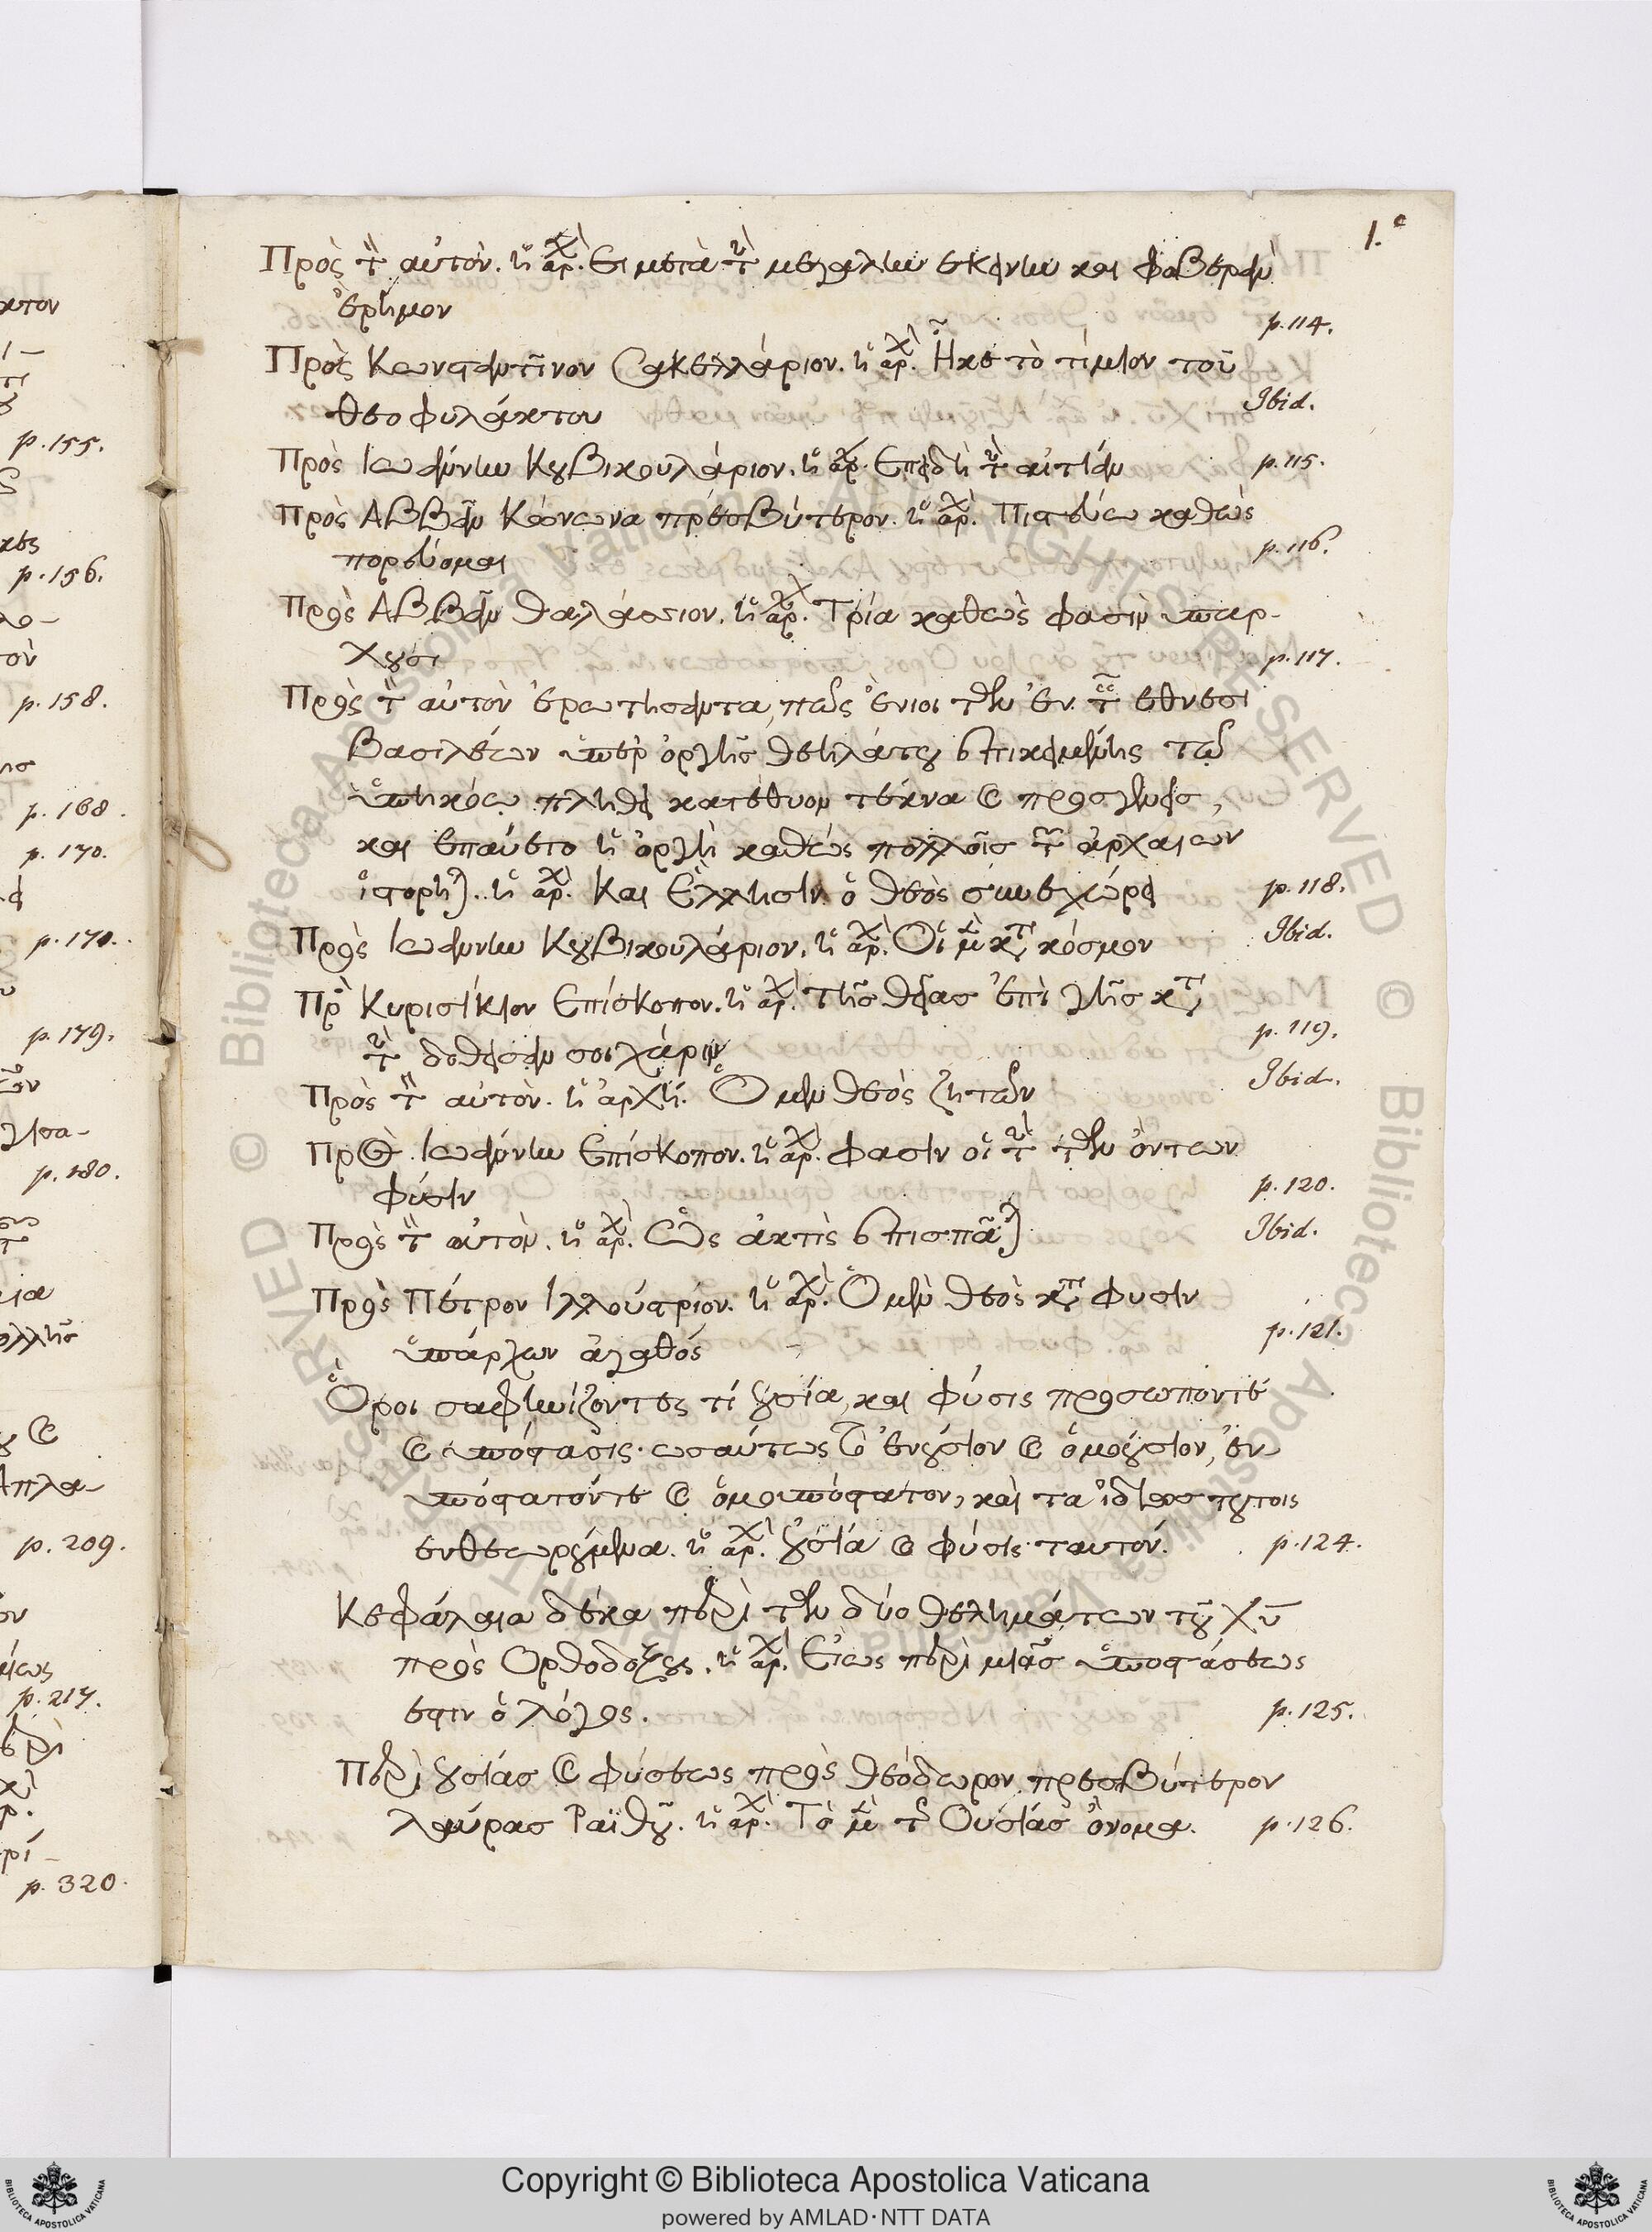 1.ᶜ
Πρὸς τ̈ αὐτὸν. ἡ ἀρχὴ. Ει μετὰ τὴν μεγάλην εκείνην και φοβεραν
ἔρημον p. 114.
Πρὸς Κωνσταντῖνον Σακελλάριον. ἡ ἀρχὴ. Ἧκε τὸ τίμιον τοῦ
θεοφυλάκτου Ibid.
Πρὸς Ιωάννην Κȣβικουλάριον. ἡ ἀρχὴ. Επειδὴ τὴν αἰτίαν p. 115.
Πρὸς Αββᾶν Κόνωνα πρέσβύτερον. ἡ ἀρχὴ. Πιστεύω καθὼς
πορεύομαι p. 116.
Πρὸς Αββᾶν θαλάσσιον. ἡ ἀρχὴ. Τρία καθὼς φασὶν υπαρ-
χȣσι p. 117.
Πρὸς τ̈ αὐτὸν ἐρωτησαντα, πῶς ἔνιοι τῶν ἐν τοῖς εθνεσι
βασιλέων ὑπὲρ ὀργῆς θεηλάτȣ επικειμένης τῷ
ὑπηκόῳ πλήθει κατέθυον τέκνα και προσγενεῖς,
και επαύετο ἡ ὀργὴ καθὼς πολλοῖς τῶν ἀρχαιων
ἱστορηται. ἡ ἀρχὴ. Και Ἕλλησιν ὁ θεὸς συνεχώρει p. 118.
Πρὸς Ιωαννην Κȣβικουλάριον. ἡ ἀρχὴ. Οἱ μὲν κατὰ κόσμον Ibid.
Πρὸς Κυρισίκιον Επίσκοπον. ἡ ἀρχὴ. Τῆς θείας ἐπὶ γῆς κατὰ
τὴν δοθεῖσαν σοι χάριν p. 119.
Πρὸς τ̈ αὐτὸν. ἡ ἀρχή. Ὁ μὲν θεὸς ζητῶν Ibid.
Πρὸς Ιωάννην Επίσκοπον. ἡ ἀρχὴ. φασὶν οἱ τὴν τῶν ὄντων
φύσιν p. 120.
Πρὸς τ̈ αὐτὸν. ἡ ἀρχὴ. Ὡς ἀκτὶς επισπᾶται Ibid.
Πρὸς Πέτρον Ιλλούστριον. ἡ ἀρχὴ. Ὁ μὲν θεὸς κατὰ φυσιν
ὑπάρχων ἀγαθός p. 121.
Ὅροι σαφηνίζοντες τί ȣσία, και φύσις προσωποντὲ
και υπόστασις· ωσαύτως τὸ ἐνȣσίον και ὁμοȣσίον, ἐν
υπόστατόντε και ὁμοϋπόστατον, καὶ τα ἰδίως τȣτοις
ενθεωρȣμενα. ἡ ἀρχὴ. ȣσία και φύσις ταυτόν. p. 124.
Κεφάλαια δέκα περὶ τῶν δύο θελημάτων τȣ̃ Χῦ
πρὸς Ορθοδοξȣς. ἡ ἀρχὴ. Εἰως περὶ μιᾶς ὑποστάσεως
εστιν ὁ λόγος. p. 125.
Περὶ ȣσίας και φύσεως πρὸς θεόδωρον πρεσβύτερον
λαύρας Ραϊθȣ̃. ἡ ἀρχὴ. Τὸ μὲν τῆς Ουσίας ὄνομα. p. 126.
p. 155.
p. 156.
p. 158.
p. 168.
p. 170.
p. 170.
p. 179.
p. 180.
p. 209.
p. 217.
p. 320.
Copyright © Biblioteca Apostolica Vaticana
powered by AMLAD·NTT DATA